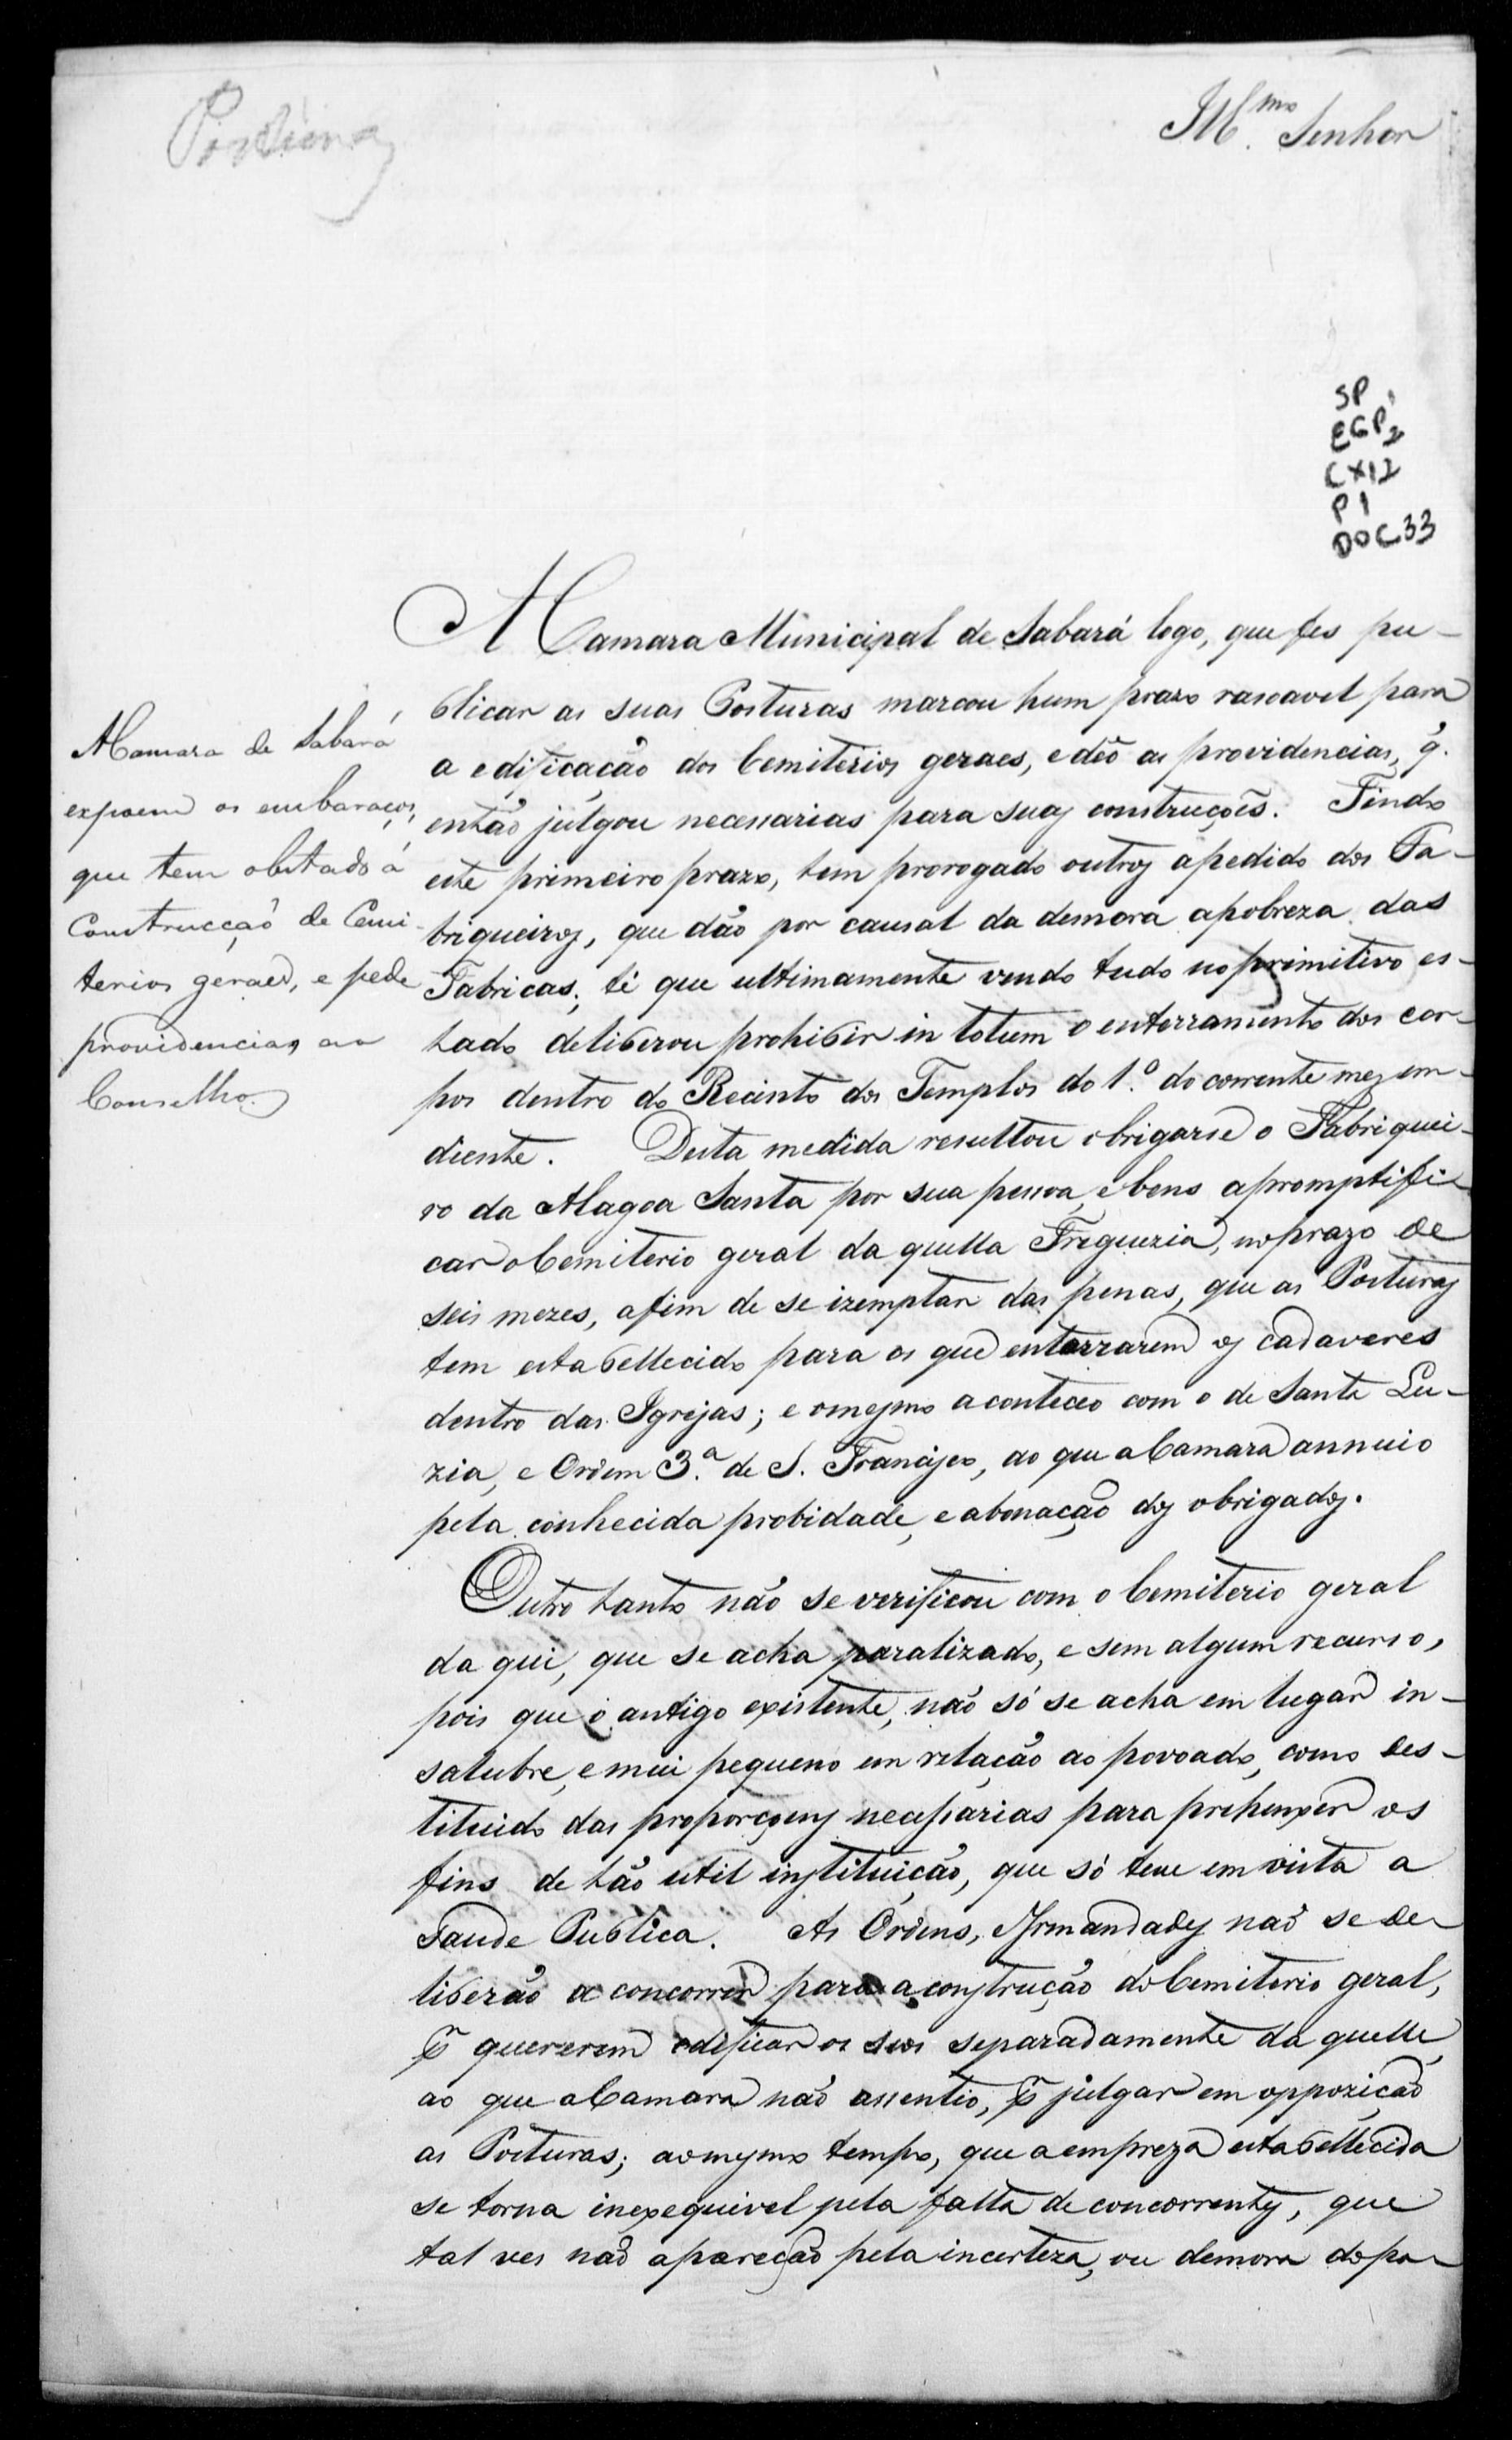 Ill.mo Senhor
SP
EGP2
CX12
P1
DOC33
A Camara Municipal de Sabará logo, que fes pu-
blicar as suas Posturas marcou hum prazo rasoavel para
a edificação dos Cemiterios geraes, e dêo as providencias, q.
então julgou necessarias para suas construçoēs. Findo
este primeiro prazo, tem prorogado outros apedido dos Fa-
briqueiros, que dão por causal da demora apobreza das
Fabricas; té que ultimamente vendo tudo no primitivo es-
tado deliberou prohibir in totum o enterramento dos cor-
pos dentro do Recinto dos Templos do 1.º do corrente mez em
diente. Desta medida resultou obrigarse o Fabriquei-
ro da Alagoa Santa por sua pessoa, e bens apromptifi-
car o Cemiterio geral da quella Freguezia, no prazo de
seis mezes, afim de se izemptar das penas, que as Posturas
tem estabellecido para os que enterrarem os cadaveres
dentro das Igrejas; e omesmo aconteceo com o de Santa Lu-
zia, e Ordem 3.ª de S. Francisco, ao que a Camara annuio
pela conhecida probidade, e abonação dos obrigados.
Outro tanto não se verificou com o Cemiterio geral
da qui, que se acha paralizado, e sem algum recurso,
pois que o antigo existente, não só se acha em lugar in-
salubre, e mui pequeno em relação ao povoado, como des-
tituido das proporçoens necessarias para prehenxer os
fins de tão util instituição, que só teve em vista a
Saude Publica. As Ordens, Irmandades não se de-
liberão a concorrer para a construção do Cemiterio geral,
p quererem edificar os seos separadamente da quelle,
ao que a Camara não assentio, p julgar em oppozição
as Posturas; aomesmo tempo, que a empreza estabellecida
se torna inexequivel pela falta de concorrentes, que
tal ves não apareção pela incerteza, ou demora do pa-
A Camara de Sabará
expoem os embaraços,
que tem obstado á
Construcção de Cemi-
terios geraes, e pede
providencias ao
Conselho.